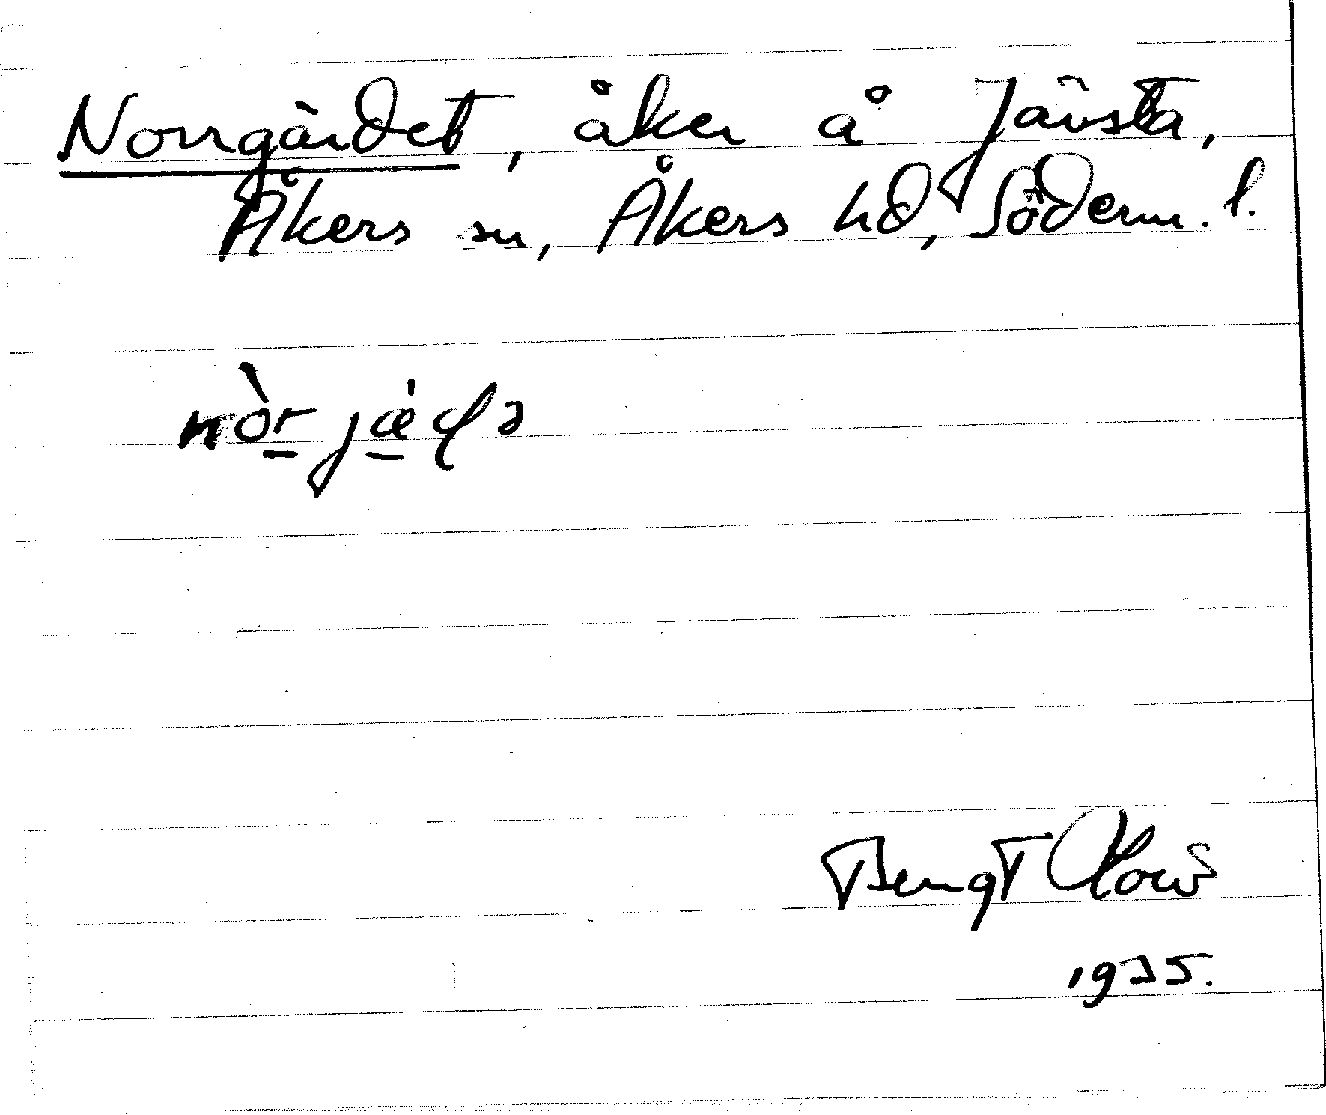 Norrgärdet, åker å Järsta,
Åkers sn, Åkers hd, Söderm. l.
nòrjæ̀ɖə
Bengt
1935.